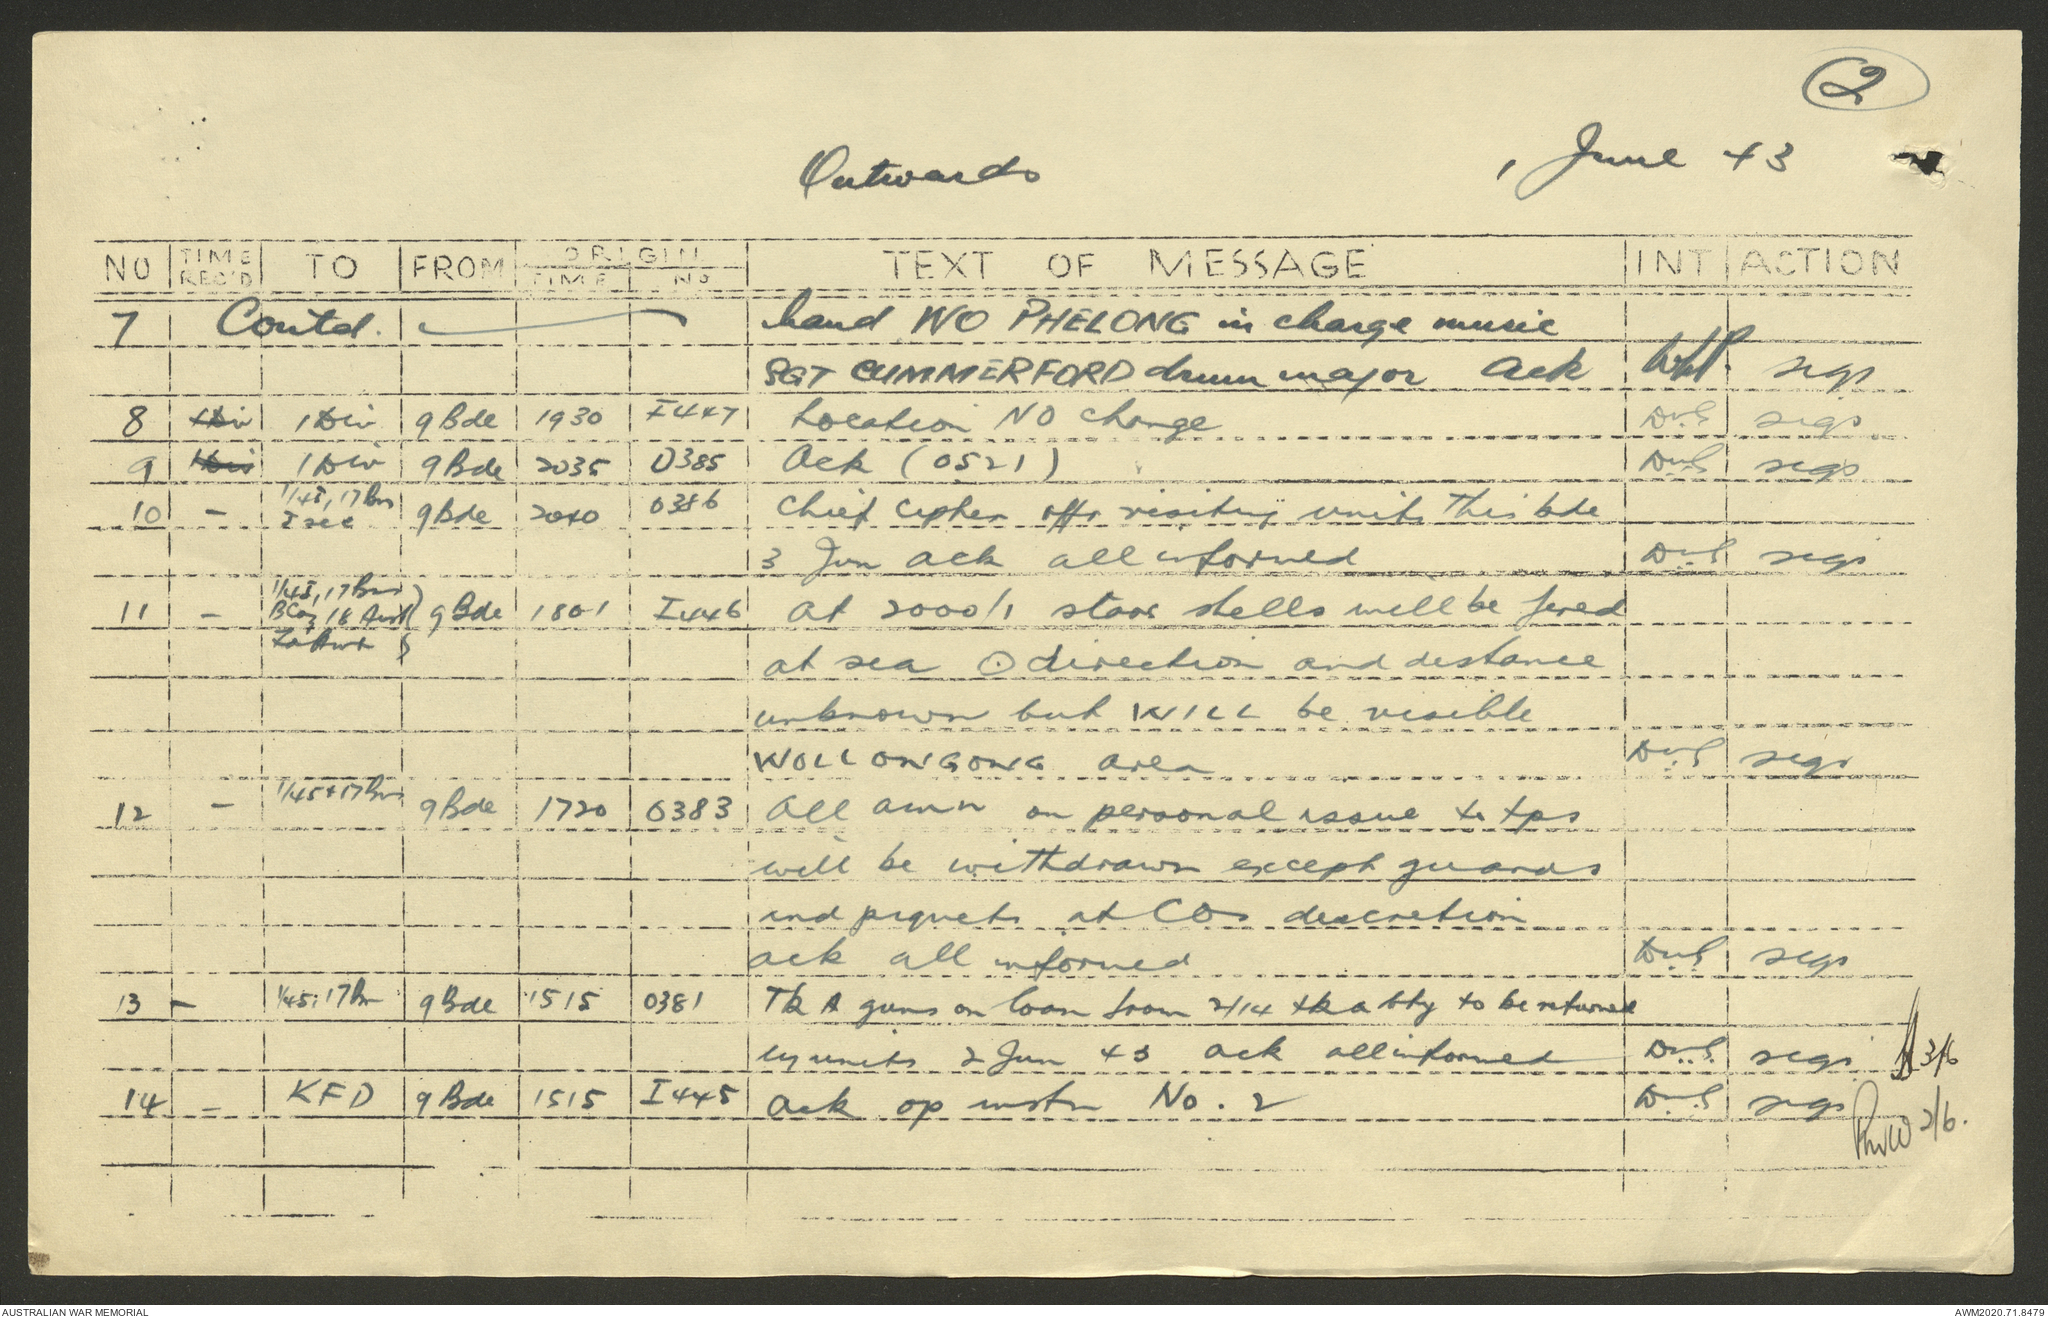 2
Outwards
1 June 43
NO TIME REC'D TO FROM ORIGIN TIME NO TEXT OF MESSAGE INT ACTION
7 Contd. hand WO PHELONG in charge music
SGT CUMMERFORD drum major ack sigs
8 1 Div 1 Div 9 Bde 1930 I447 Location NO change sigs
9 1 Div 9 Bde 2035 O385 Ack (0521) sigs
10 - 1/45, 17 Bns I sec 9 Bde 2040 O386 Chief cipher offr visiting units this bde
3 Jun ack all informed sigs
11 - 1/45, 17 Bns B Coy 18 9 Bde 1801 I446 At 2000/1 star shells will be fired
at sea ⊙ direction and distance
unknown but WILL be visible
WOLLONGONG area sigs
12 - 1/45 + 17 Bns 9 Bde 1720 O383 All amn on personal issue to tps
will be withdrawn except guards
and piquets at COs descretion
ack all informed sigs
13 - 1/45, 17 Bn 9 Bde 1515 O381 Tk A guns on loan from 2/14 tk a bty to be returned
by units 2 Jun 43 ack all informed sigs 3/6
14 - KFD 9 Bde 1515 I445 Ack op instn No. 2 sigs
2/6.
AUSTRALIAN WAR MEMORIAL
AWM2020.71.8479